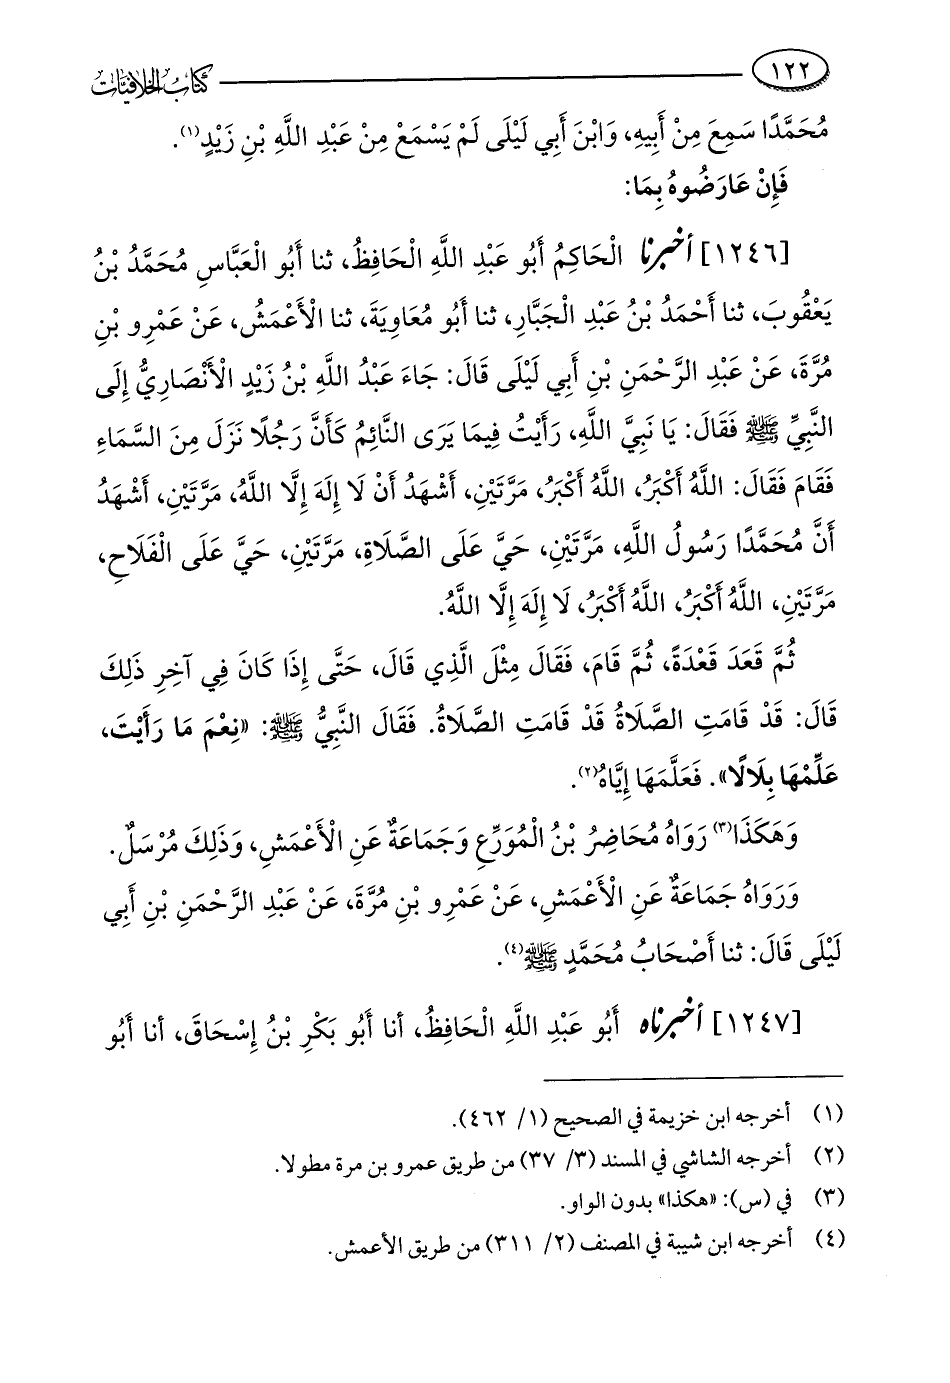 ١٢٢ كتاب الخلافيات
مُحَمَّدًا سَمِعَ مِنْ أَبِيهِ، وَابْنَ أَبِي لَيْلَى لَمْ يَسْمَعْ مِنْ عَبْدِ اللَّهِ بْنِ زَيْدٍ(١).
فَإِنْ عَارَضُوهُ بِمَا:
[١٢٤٦] أخبرنا الْحَاكِمُ أَبُو عَبْدِ اللَّهِ الْحَافِظُ، ثنا أَبُو الْعَبَّاسِ مُحَمَّدُ بْنُ
يَعْقُوبَ، ثنا أَحْمَدُ بْنُ عَبْدِ الْجَبَّارِ، ثنا أَبُو مُعَاوِيَةَ، ثنا الْأَعْمَشُ، عَنْ عَمْرِو بْنِ
مُرَّةَ، عَنْ عَبْدِ الرَّحْمَنِ بْنِ أَبِي لَيْلَى قَالَ: جَاءَ عَبْدُ اللَّهِ بْنُ زَيْدٍ الْأَنْصَارِيُّ إِلَى
النَّبِيِّ ﷺ فَقَالَ: يَا نَبِيَّ اللَّهِ، رَأَيْتُ فِيمَا يَرَى النَّائِمُ كَأَنَّ رَجُلًا نَزَلَ مِنَ السَّمَاءِ
فَقَامَ فَقَالَ: اللَّهُ أَكْبَرُ، اللَّهُ أَكْبَرُ، مَرَّتَيْنِ، أَشْهَدُ أَنْ لَا إِلَهَ إِلَّا اللَّهُ، مَرَّتَيْنِ، أَشْهَدُ
أَنَّ مُحَمَّدًا رَسُولُ اللَّهِ، مَرَّتَيْنِ، حَيَّ عَلَى الصَّلَاةِ، مَرَّتَيْنِ، حَيَّ عَلَى الْفَلَاحِ،
مَرَّتَيْنِ، اللَّهُ أَكْبَرُ، اللَّهُ أَكْبَرُ، لَا إِلَهَ إِلَّا اللَّهُ.
ثُمَّ قَعَدَ قَعْدَةً، ثُمَّ قَامَ، فَقَالَ مِثْلَ الَّذِي قَالَ، حَتَّى إِذَا كَانَ فِي آخِرِ ذَلِكَ
قَالَ: قَدْ قَامَتِ الصَّلَاةُ قَدْ قَامَتِ الصَّلَاةُ. فَقَالَ النَّبِيُّ ﷺ: «نِعْمَ مَا رَأَيْتَ،
عَلِّمْهَا بِلَالًا». فَعَلَّمَهَا إِيَّاهُ(٢).
وَهَكَذَا(٣) رَوَاهُ مُحَاضِرُ بْنُ الْمُوَرِّعِ وَجَمَاعَةٌ عَنِ الْأَعْمَشِ، وَذَلِكَ مُرْسَلٌ.
وَرَوَاهُ جَمَاعَةٌ عَنِ الْأَعْمَشِ، عَنْ عَمْرِو بْنِ مُرَّةَ، عَنْ عَبْدِ الرَّحْمَنِ بْنِ أَبِي
لَيْلَى قَالَ: ثنا أَصْحَابُ مُحَمَّدٍ ﷺ(٤).
[١٢٤٧] أخبرناه أَبُو عَبْدِ اللَّهِ الْحَافِظُ، أنا أَبُو بَكْرِ بْنُ إِسْحَاقَ، أنا أَبُو
(١) أخرجه ابن خزيمة في الصحيح (١/ ٤٦٢).
(٢) أخرجه الشاشي في المسند (٣/ ٣٧) من طريق عمرو بن مرة مطولا.
(٣) في (س): «هكذا» بدون الواو.
(٤) أخرجه ابن شيبة في المصنف (٢/ ٣١١) من طريق الأعمش.